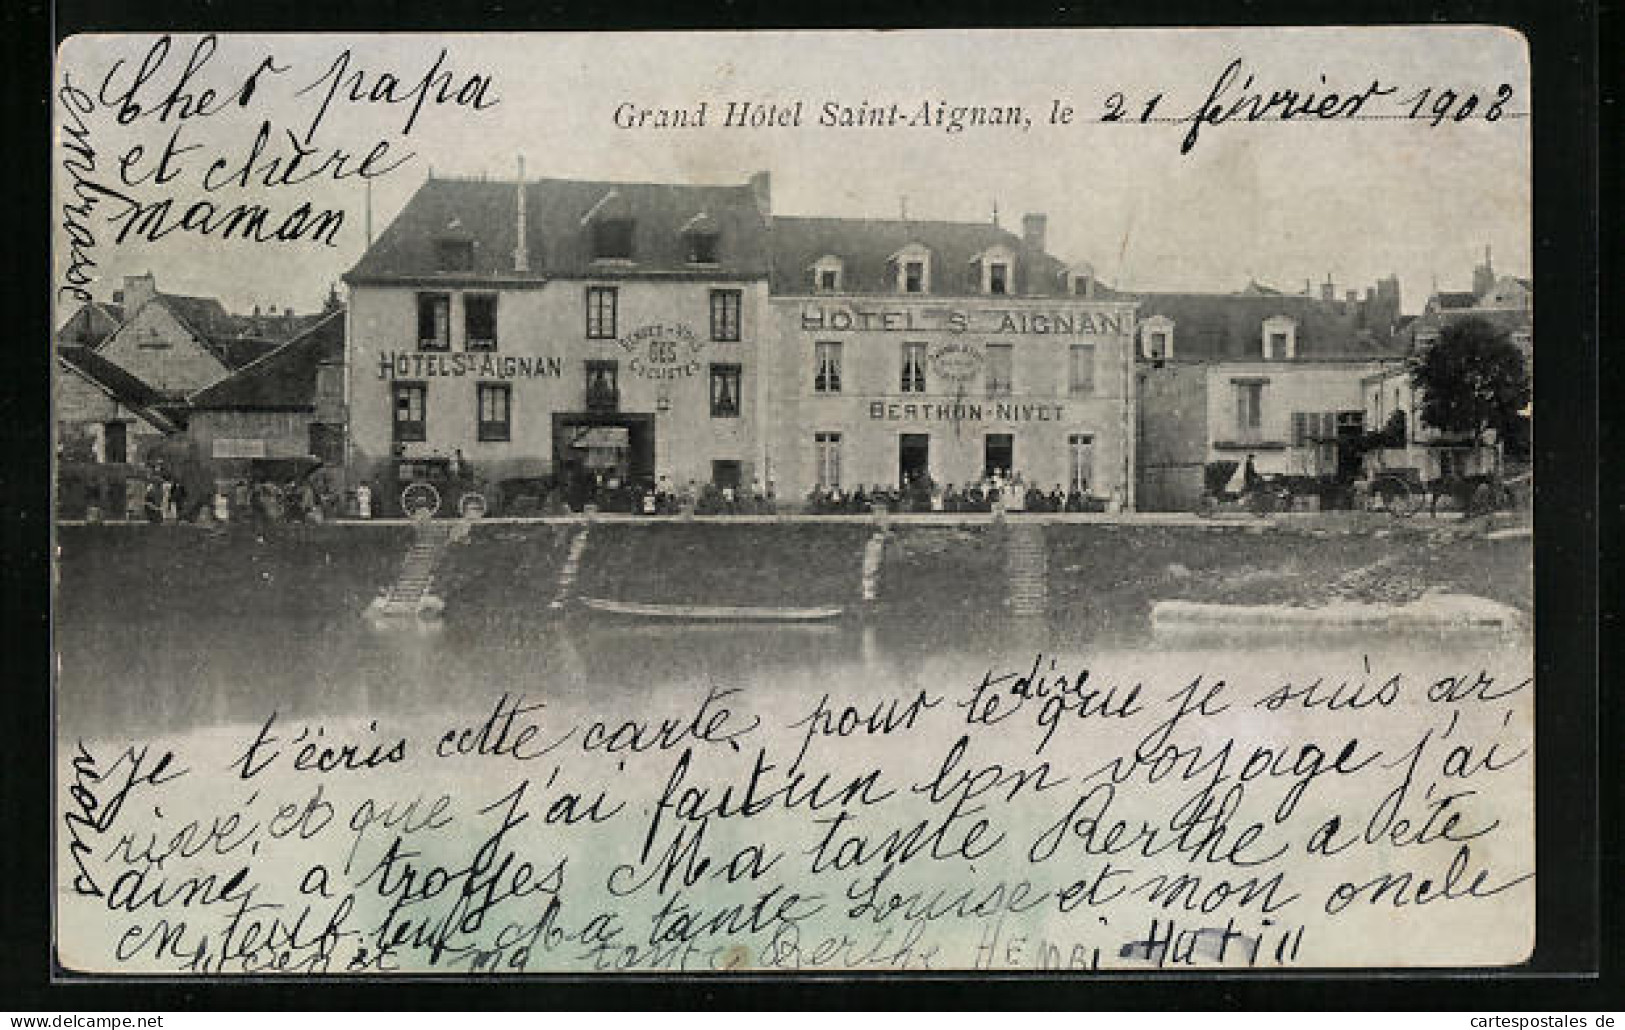 Cher papa
et chère
maman
Grand Hôtel Saint-Aignan, le 21 février 1908
HOTEL ST AIGNAN
RENDEZ-VOUS
DES
CYCLISTES
HOTEL ST AIGNAN
BERTHON-NIVET
Je t'écris cette carte pour te dire que je suis ar
rivé, et que j'ai fait un bon voyage j'ai
diné a troyes Ma tante Berthe a été
Ma tante Louise et mon oncle
et ma tante Berthe HENRI Hutin
vous
embrasse
cartespostales de